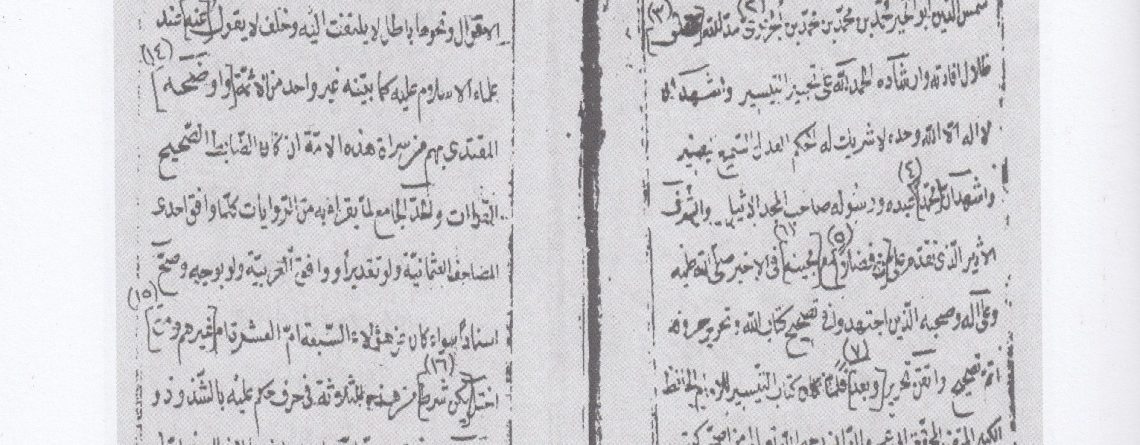 شمس الدين ابو الخير محمد بن محمد بن محمد بن الجزرى مد الله (٢) (٣)
ظلال افادته وارشاده الحمد لله على تحبير التيسير واشهد ان
لا اله الا الله وحده لا شريك له الحكم العدل السميع البصير
واشهد ان محمدا (٤) عبده ورسوله صاحب المجد الاثيل والشرف
الاثير الذى تقدم على (٥) (٦) فى الاخير صلى الله عليه
وعلى آله وصحبه الذين اجتهدوا فى تصحيح كتاب الله وتحرير حروفه
اتم تصحيح واتقن تحرير [وبعد] (٧) فلما كان كتاب التيسير للامام الحافظ
الاقوال ونحوها باطل لا يلتفت اليه وخلف لا يقول [عنه] عند
علماء الاسلام عليه كما بينه غير واحد من الائمة [واوضحه] (١٤)
المقتدى بهم من سراة هذه الامة ان كان الضابط الصحيح
القراءات والحد الجامع لما يقرا به من الروايات كلما وافق احدى
المصاحف العثمانية ولو تقديرا ووافق العربية ولو بوجه وصح
اسناده سواء كان عن هؤلاء السبعة ام العشرة ام [غيرهم ومتى] (١٥)
اختل [ركن شرط] (١٦) من هذه الثلاثة فى حرف حكم عليه بالشذوذ و